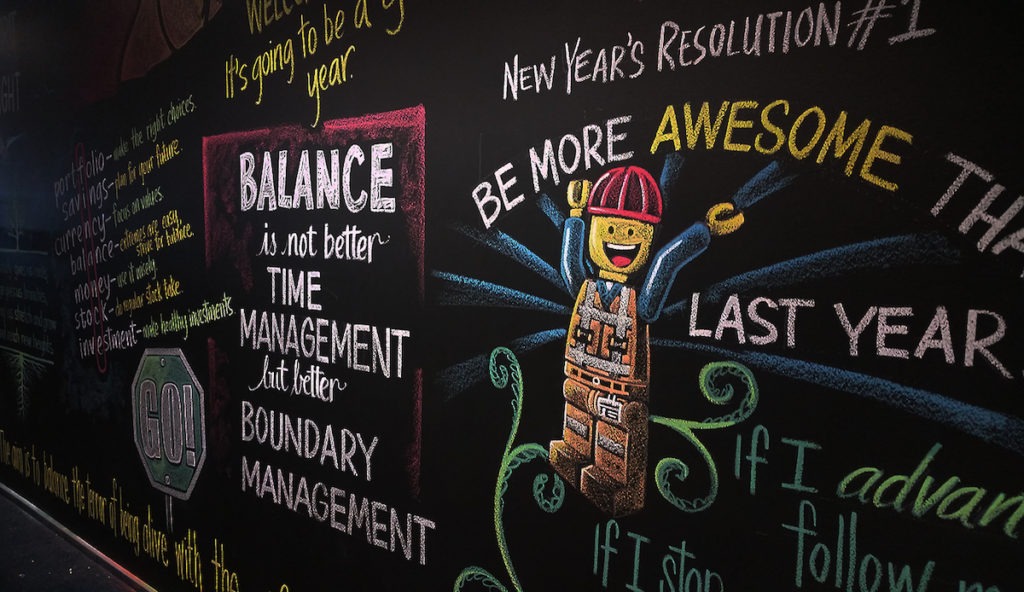 WELCOME
It's going to be a g
year.
portfolio - make the right choices.
savings - plan for your future.
currency - focus on values
balance - extremes are easy,
strive for balance.
money - use it wisely.
stock - do regular stock take
investment - make healthy investments
GO!
BALANCE
is not better
TIME
MANAGEMENT
but better
BOUNDARY
MANAGEMENT
The aim is to balance the terror of being alive with the
NEW YEAR'S RESOLUTION #1
BE MORE AWESOME THA
LAST YEAR.
If I advan
follow m
If I stop